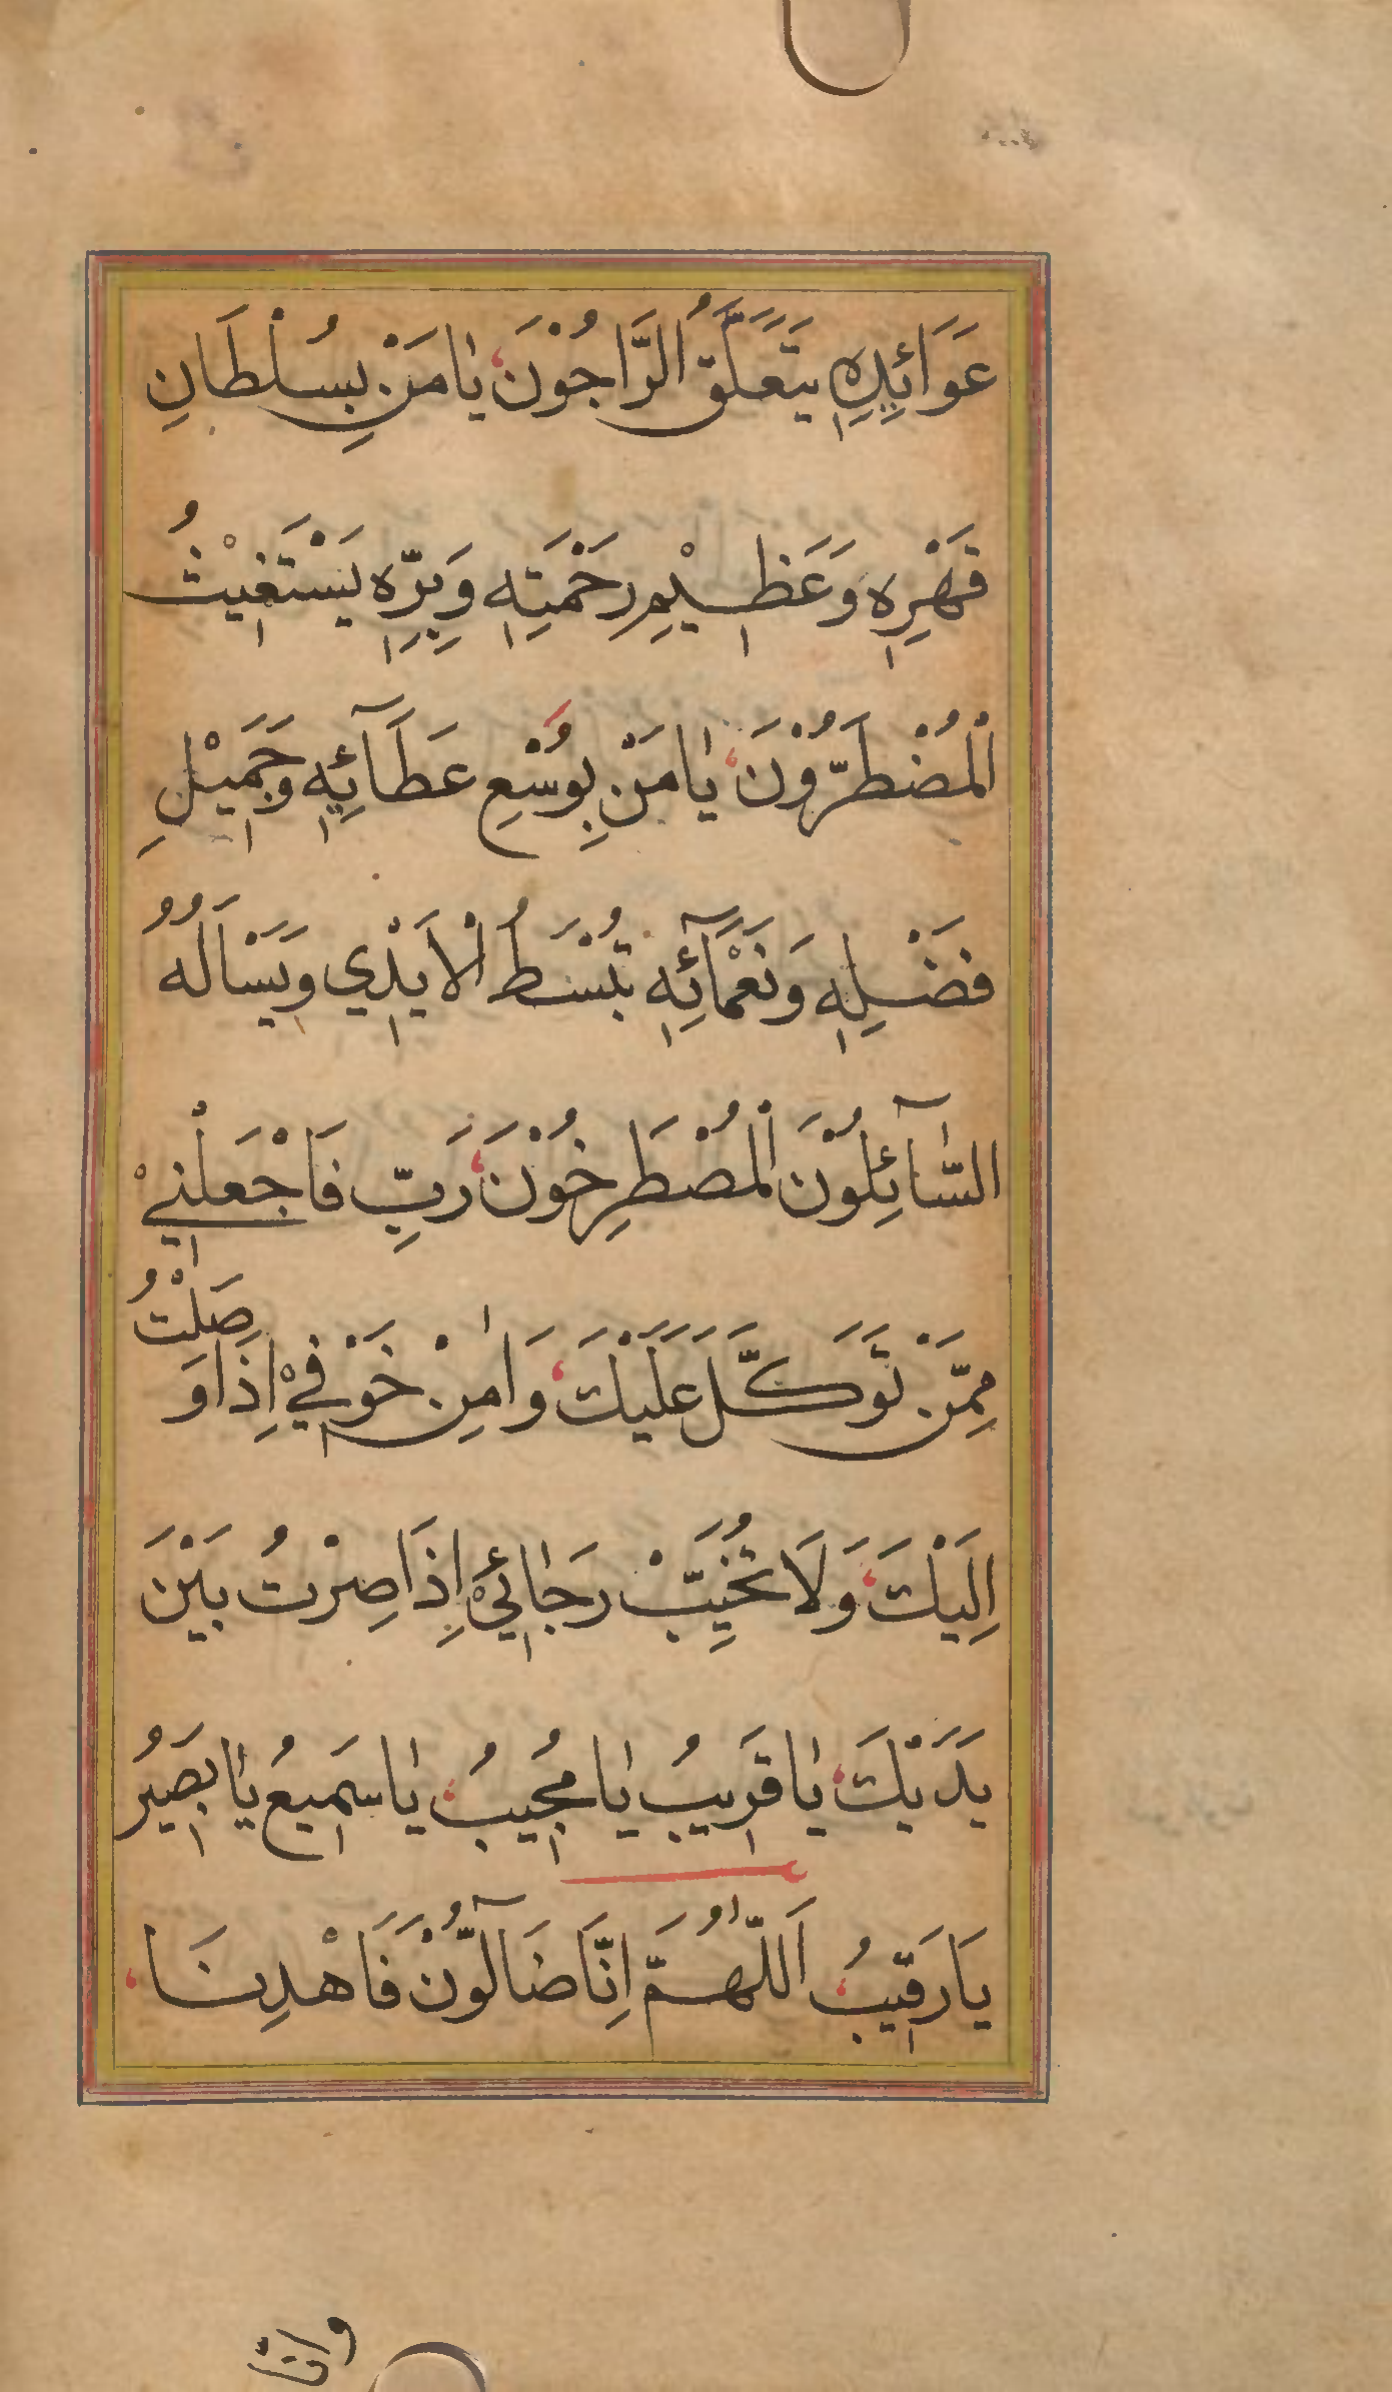 عَوَائِدِهِ يَتَعَلَّقُ الرَّاجُوْنَ، يٰامَنْ بِسُلْطَانِ
قَهْرِهِ وَعَظِيْمِ رَحْمَتِهِ وَبِرِّهِ يَسْتَغِيْثُ
الْمُضْطَرُّوْنَ، يٰامَنْ بِوُسْعِ عَطَآئِهِ وَجَمِيْلِ
فَضْلِهِ وَنَعْمَآئِهِ تُبْسَطُ الْاَيْدِي وَيَسْاَلُهُ
السّٰآئِلُوْنَ الْمُصْطَرِخُوْنَ، رَبِّ فَاجْعَلْنِيْ
مِمَّنْ تَوَكَّلَ عَلَيْكَ، وَاٰمِنْ خَوْفِيْ اِذَا وَصَلْتُ
اِلَيْكَ، وَلَا تُخَيِّبْ رَجٰائِيْ اِذَا صِرْتُ بَيْنَ
يَدَيْكَ، يٰا قَرِيبُ يٰا مُجِيبُ، يٰا سَمِيعُ يٰا بَصِيرُ
يَا رَقِيبُ، اَللّٰهُمَّ اِنَّا ضَآلُّوْنَ فَاهْدِنَا،
وَاِنَّا